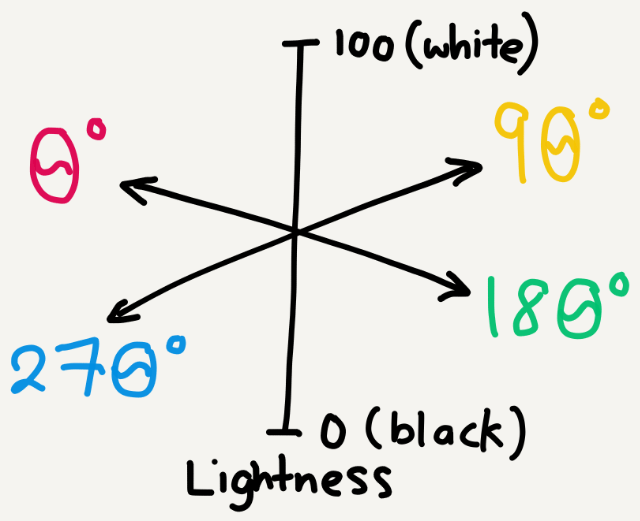 100 (white)
θ°
9θ°
18θ°
27θ°
0 (black)
Lightness